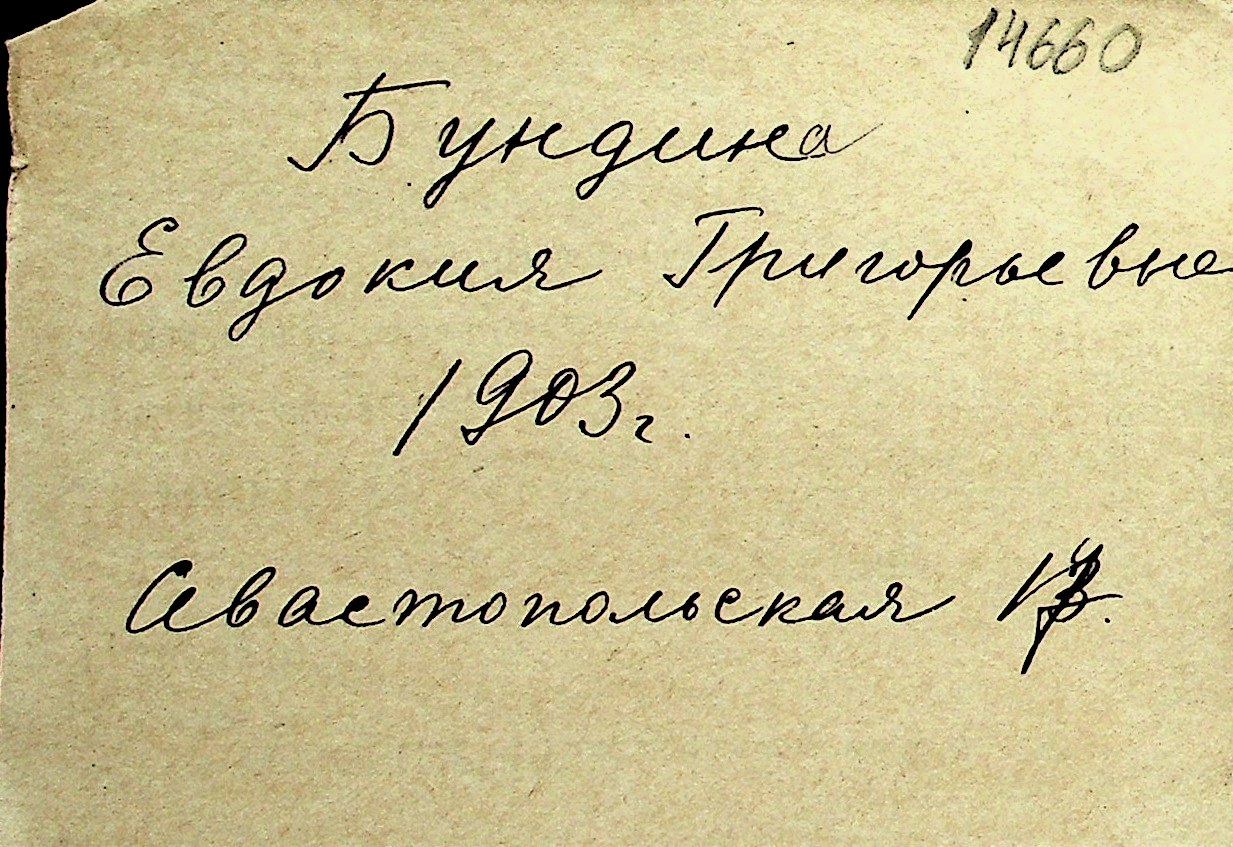 14660
Бундина
Евдокия Григорьевна
1903г.
Севастопольская